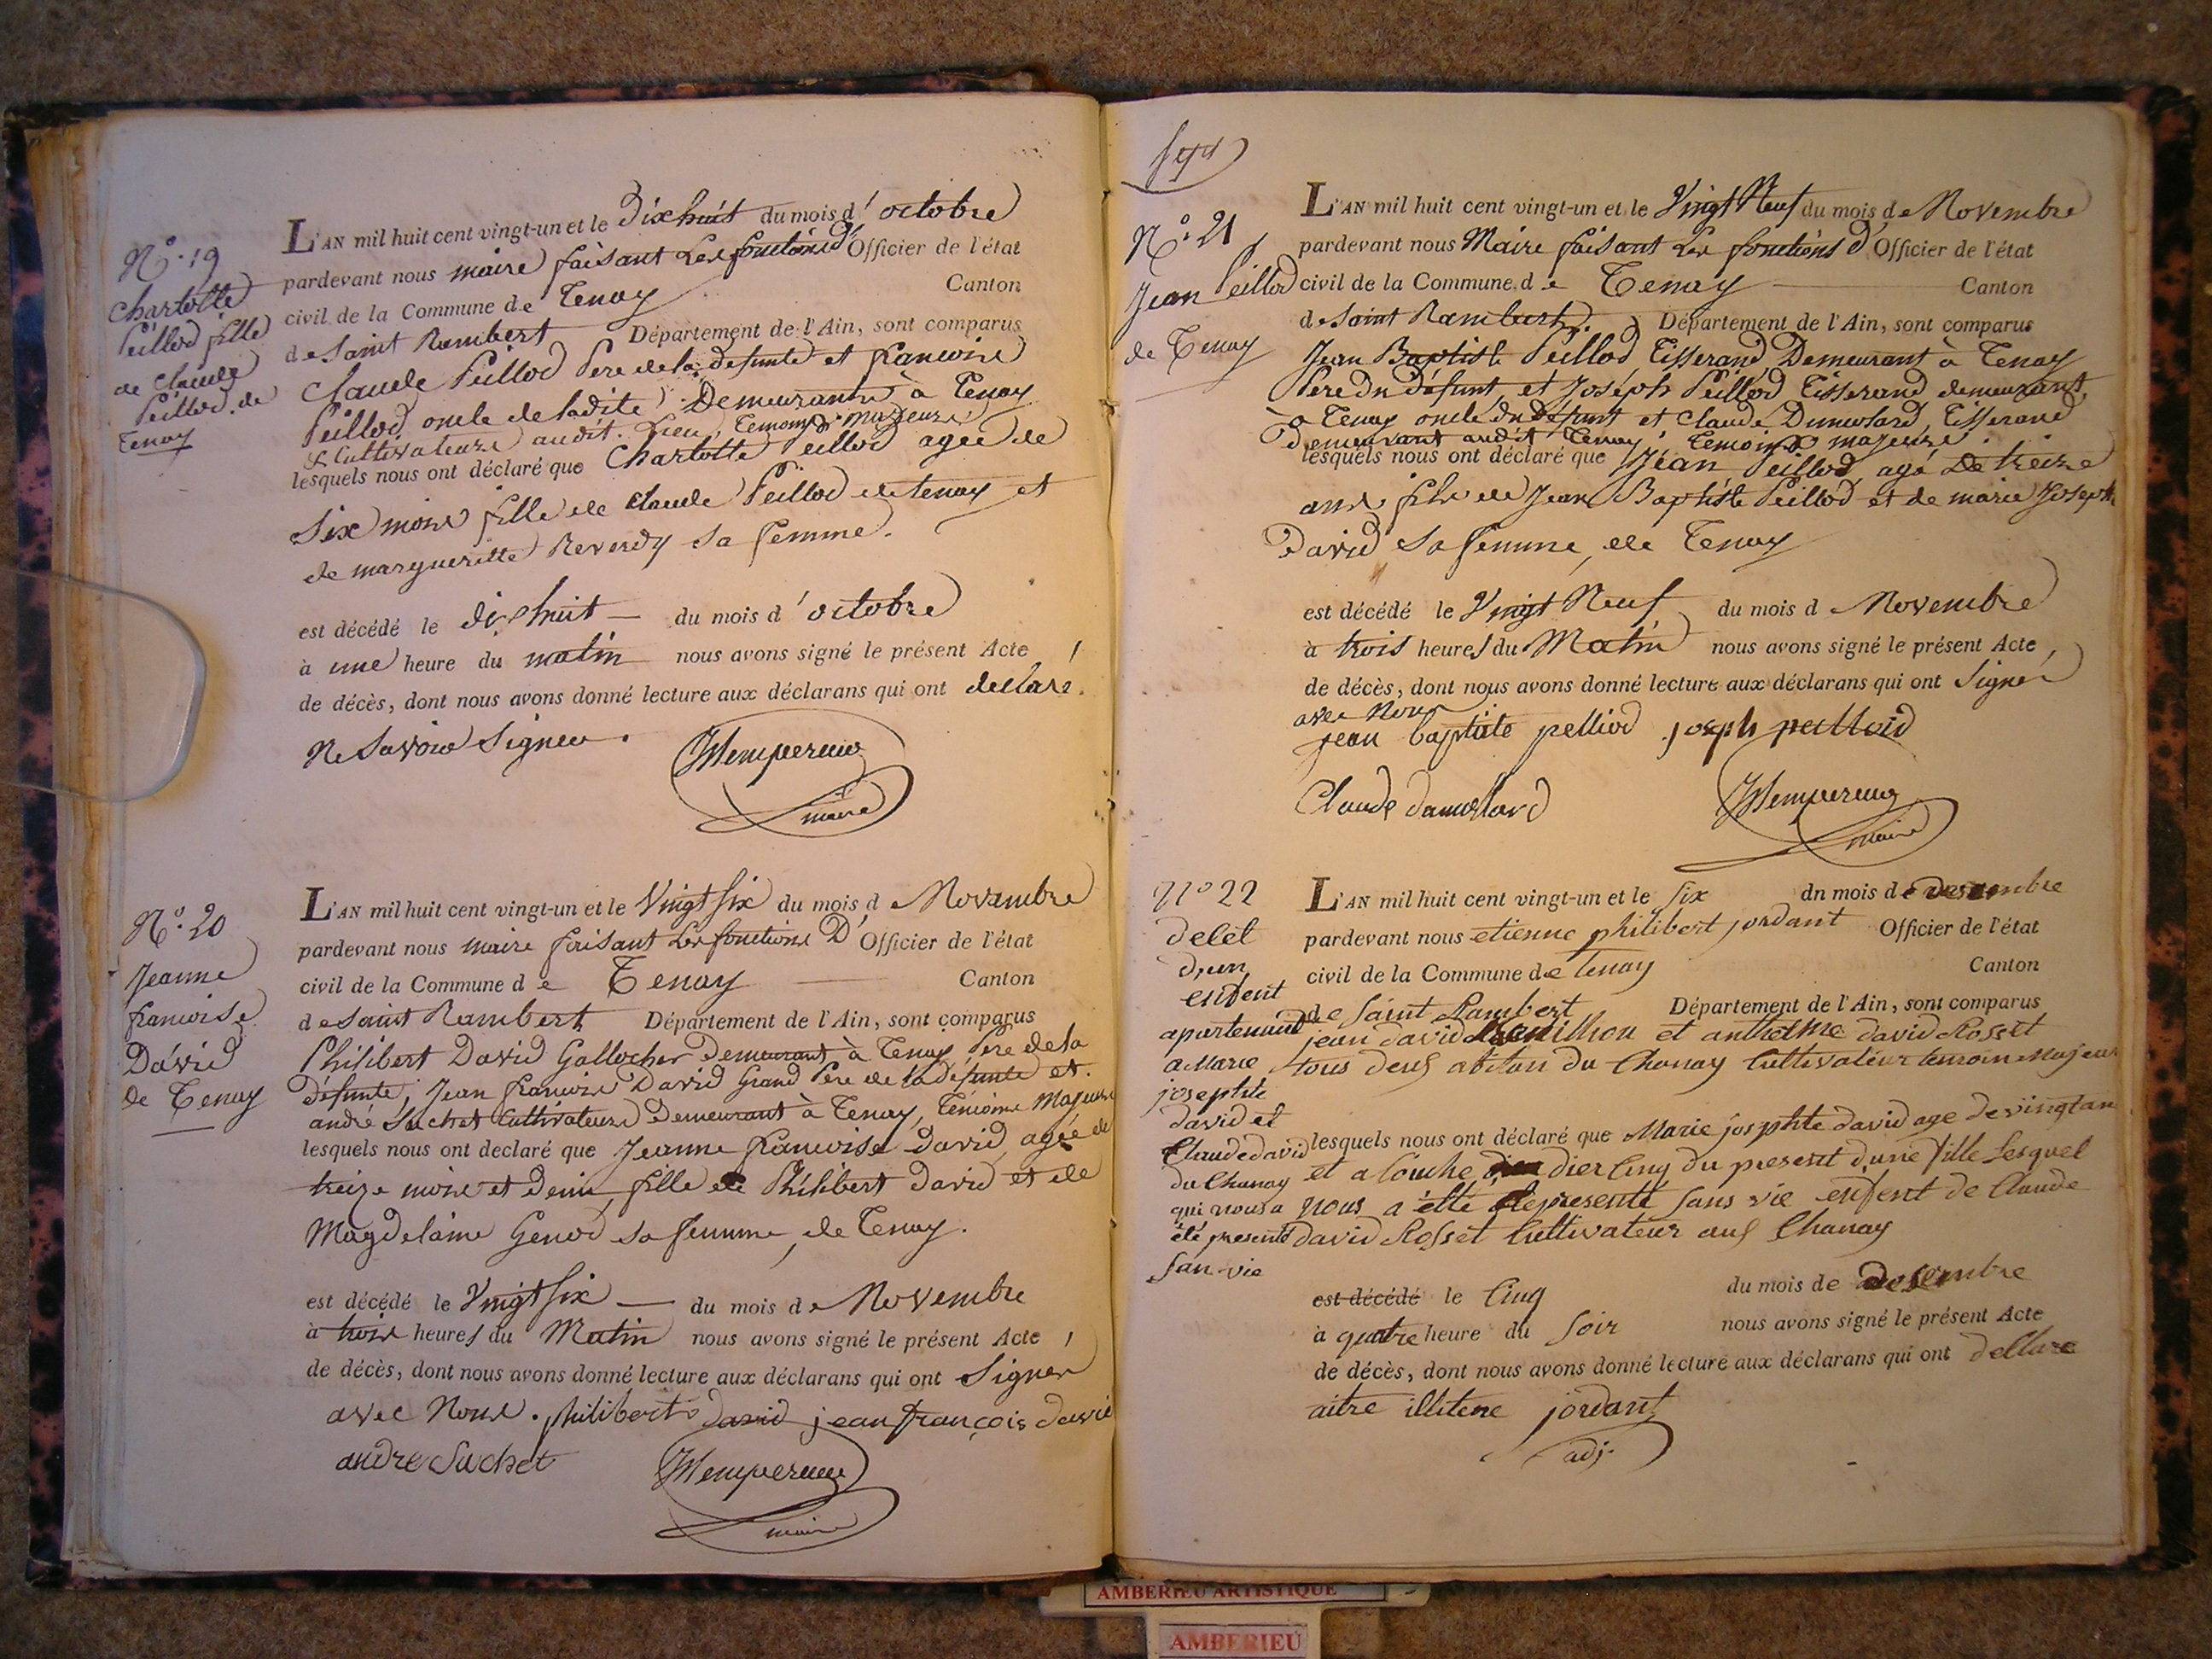 N.° 19
Charlotte
Peillod fille
de Claude
Peillod. de
Tenay
L'AN mil huit cent vingt-un et le Dix huit du mois d'octobre
pardevant nous maire faisant Les fonctions d'Officier de l'état
civil de la Commune de Tenay Canton
de Saint Rambert Département de l'Ain, sont comparus
Claude Peillod Pere de la défunte et francoise
Peillod oncle de ladite Demeurants à Tenay
& Cultivateurs audit. Lieu, Temoins Majeurs
lesquels nous ont déclaré que Charlotte Peillod agée de
six mois fille de Claude Peillod de tenay et
de margueritte Reverdy sa femme.
est décédé le dix huit du mois d'octobre
à une heure du matin nous avons signé le présent Acte
de décès, dont nous avons donné lecture aux déclarans qui ont declaré
Ne Savoir Signer.
maire
N.° 20
Jeanne
francoise
David
de Tenay
L'AN mil huit cent vingt-un et le Vingt six du mois de Novembre
pardevant nous maire faisant Les fonctions D'Officier de l'état
civil de la Commune de Tenay Canton
de Saint Rambert Département de l'Ain, sont comparus
Philibert David Gallocher demeurant à Tenay Pere de la
défunte, Jean francois David Grand Pere de la défunte et.
andré Suchet Cultivateurs Demeurant à Tenay, Témoins Majeurs
lesquels nous ont declaré que Jeanne francoise David agée de
treize mois et demi fille de Philibert David et de
Magdelaine Genod sa femme, de Tenay.
est décédé le Vingt six du mois de Novembre
à trois heures du Matin nous avons signé le présent Acte
de décès, dont nous avons donné lecture aux déclarans qui ont Signer
avec Nous. philibert david jean françois david
andre Suchet
maire
N.° 21
Jean Peillod
de Tenay
L'AN mil huit cent vingt-un et le Vingt Neuf du mois de Novembre
pardevant nous Maire faisant Les fonctions d'Officier de l'état
civil de la Commune de Tenay Canton
de Saint Rambert. Département de l'Ain, sont comparus
Jean Baptiste Peillod Tisserand Demeurant à Tenay
Pere du défunt, et Joséph Peillod Tisserand demeurant
à Tenay oncle du défunt et Claude Dumolard, Tisserand
demeurant audit Tenay, Temoins majeurs
lesquels nous ont déclaré que Jean Peillod, agé De treize
ans fils de Jean Baptiste Peillod et de marie Joseph
David sa femme, de Tenay
est décédé le Vingt Neuf du mois de Novembre
à trois heures du Matin nous avons signé le présent Acte
de décès, dont nous avons donné lecture aux déclarans qui ont Signer
avec Nous
jean baptiste pelliod joseph peilloid
Claude damollard
maire
N° 22
delet
dun
enfent
apartenant
a Marie
josephte
david et
Claude david
du Chanay
qui nous a
été presenté
san vie
L'AN mil huit cent vingt-un et le six du mois de desembre
pardevant nous etienne philibert jordant Officier de l'état
civil de la Commune de tenay Canton
de Saint Rambert Département de l'Ain, sont comparus
jean david et anthelme david Rosset
tous deux abitan du Chanay Cultivateur temoin Majeur
lesquels nous ont déclaré que Marie josephte david age de vingt an
et a Couche dier Cinq du present dune fille Lesquel
nous a etté représenté sans vie enfent de Claude
david Rosset Cultivateur aux Chanay
est décédé le Cinq du mois de desembre
à quatre heure du Soir nous avons signé le présent Acte
de décès, dont nous avons donné lecture aux déclarans qui ont dellare
aitre illitere jordant
adj.
AMBERIEU ARTISTIQUE
AMBERIEU